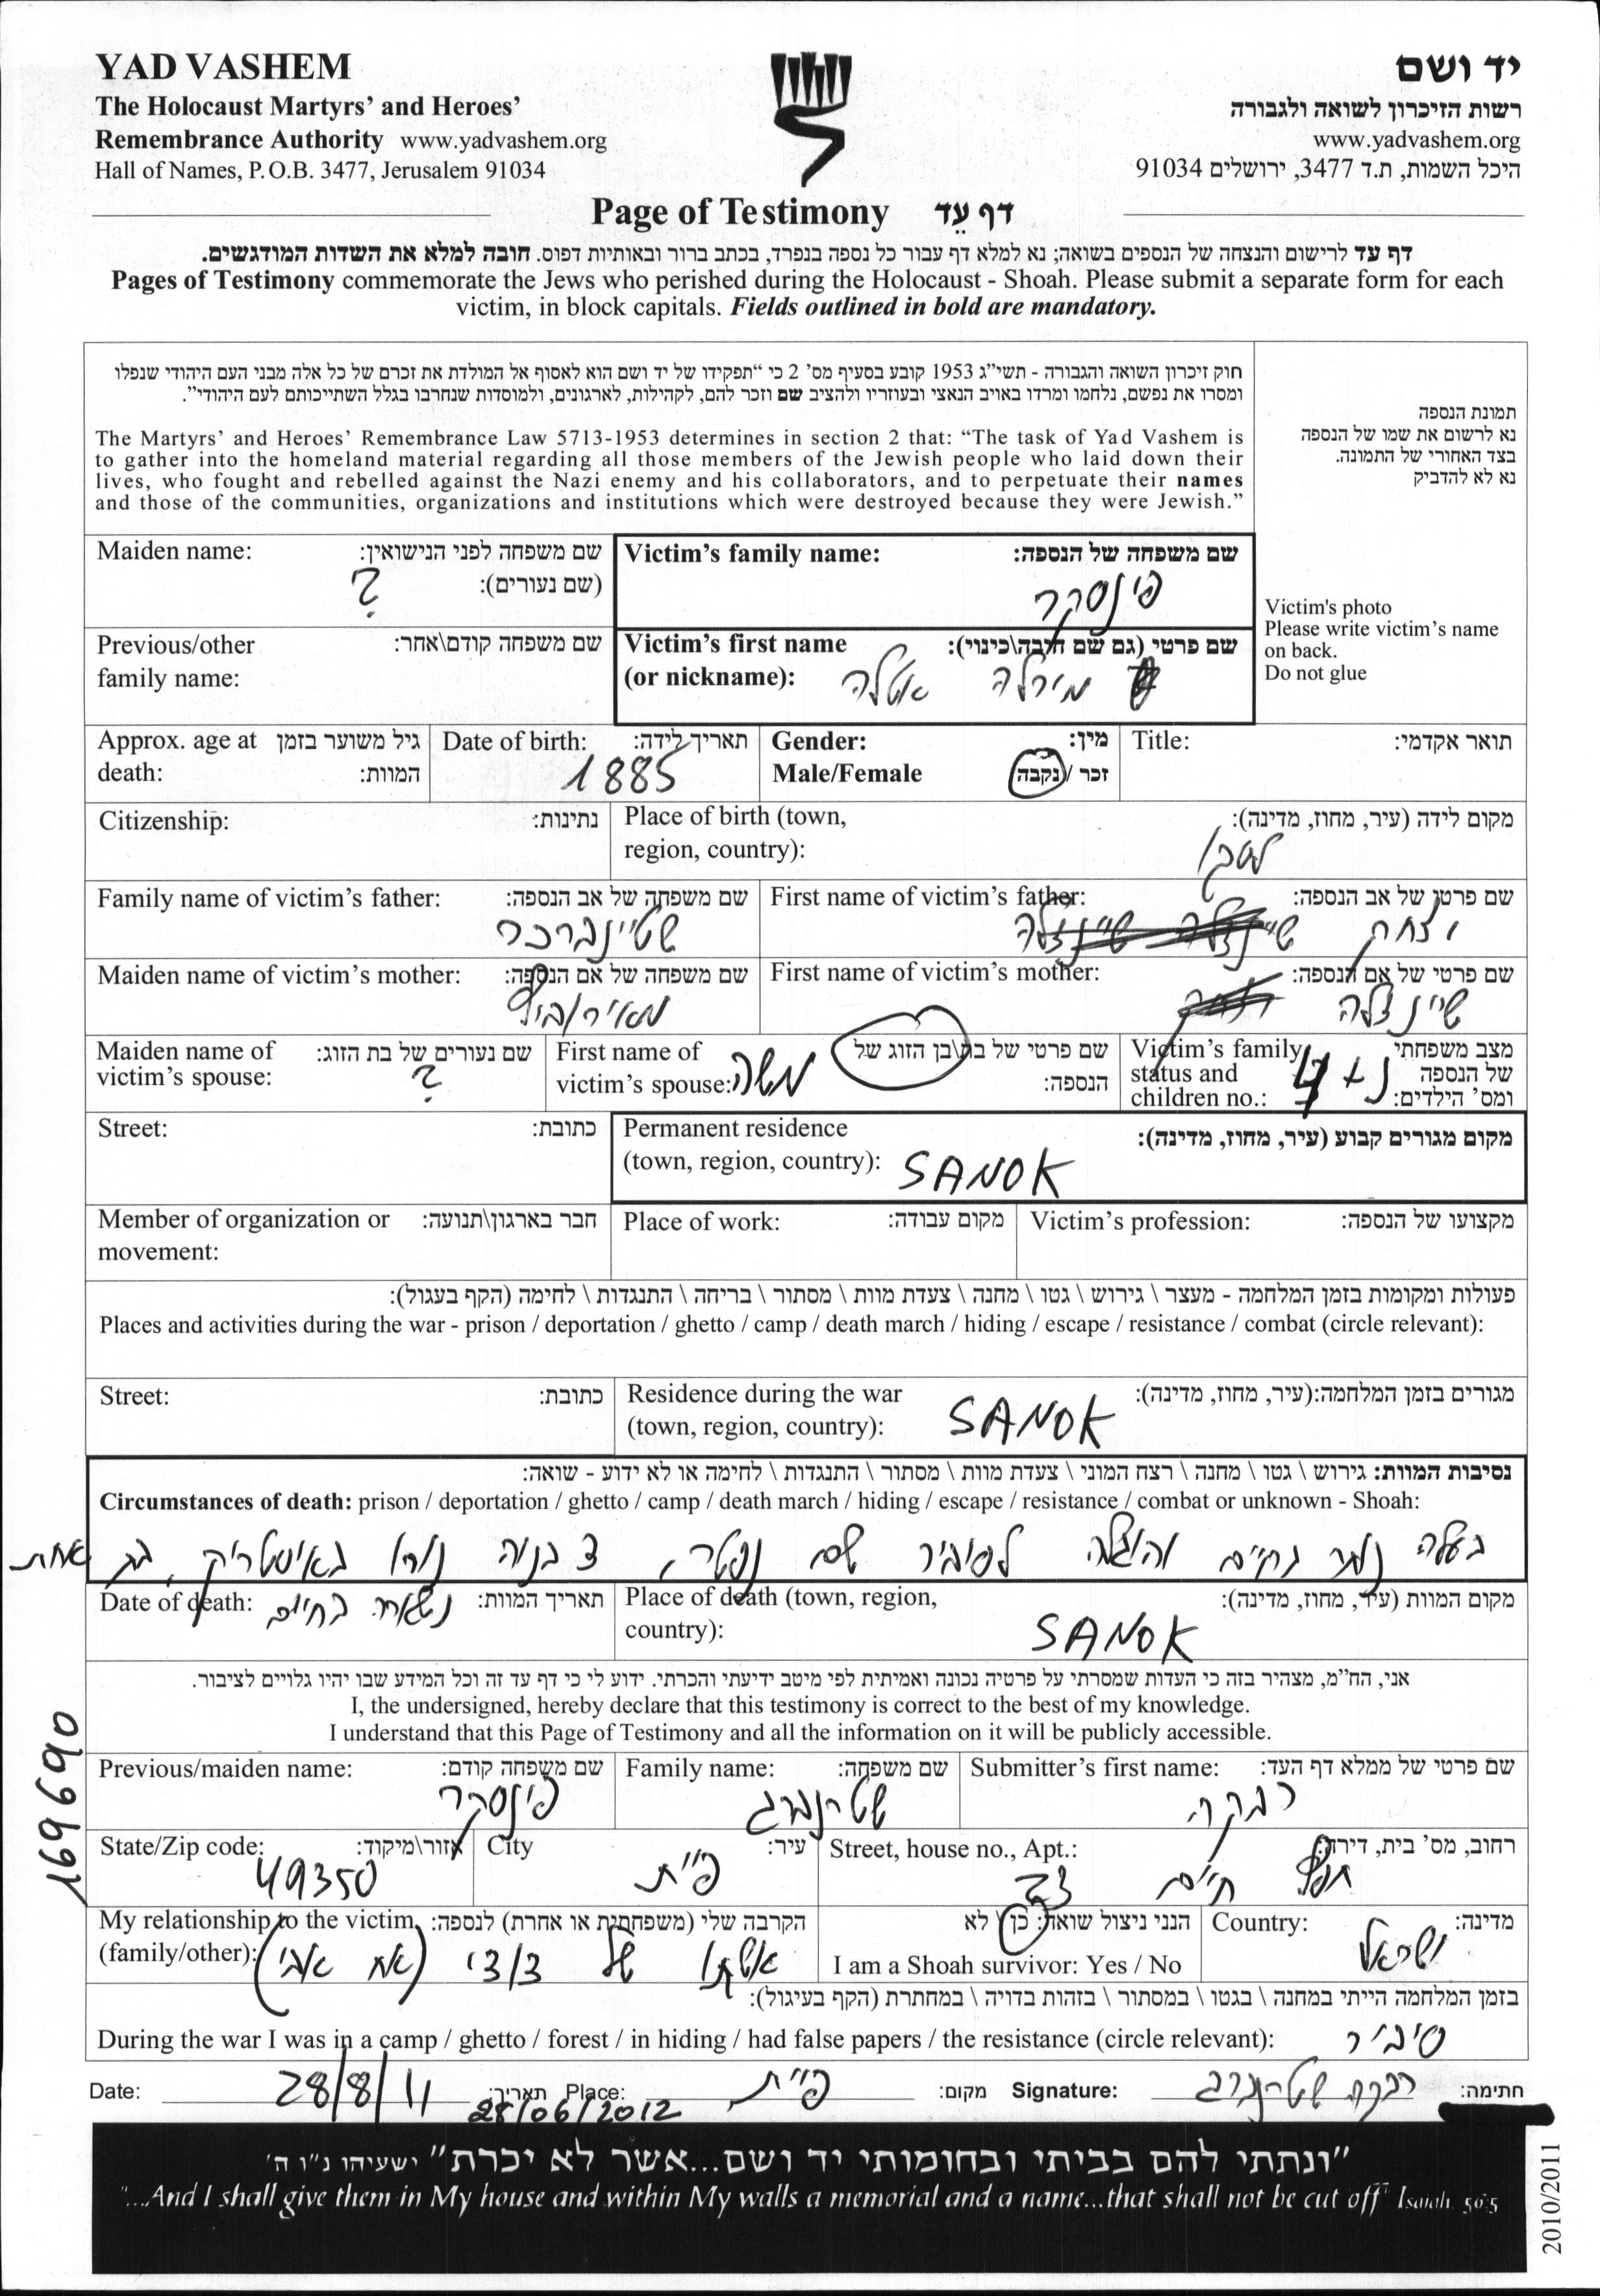 YAD VASHEM
יד ושם
The Holocaust Martyrs' and Heroes'
רשות הזיכרון לשואה ולגבורה
Remembrance Authority www.yadvashem.org
www.yadvashem.org
Hall of Names, P.O.B. 3477, Jerusalem 91034
היכל השמות, ת.ד 3477, ירושלים 91034
Page of Testimony דף עֵד
דף עד לרישום והנצחה של הנספים בשואה; נא למלא דף עבור כל נספה בנפרד, בכתב ברור ובאותיות דפוס. חובה למלא את השדות המודגשים.
Pages of Testimony commemorate the Jews who perished during the Holocaust - Shoah. Please submit a separate form for each
victim, in block capitals. Fields outlined in bold are mandatory.
חוק זיכרון השואה והגבורה - תשי"ג 1953 קובע בסעיף מס' 2 כי "תפקידו של יד ושם הוא לאסוף אל המולדת את זכרם של כל אלה מבני העם היהודי שנפלו
ומסרו את נפשם, נלחמו ומרדו באויב הנאצי ובעוזריו ולהציב שם וזכר להם, לקהילות, לארגונים, ולמוסדות שנחרבו בגלל השתייכותם לעם היהודי".
The Martyrs' and Heroes' Remembrance Law 5713-1953 determines in section 2 that: "The task of Yad Vashem is
to gather into the homeland material regarding all those members of the Jewish people who laid down their
lives, who fought and rebelled against the Nazi enemy and his collaborators, and to perpetuate their names
and those of the communities, organizations and institutions which were destroyed because they were Jewish."
תמונת הנספה
נא לרשום את שמו של הנספה
בצד האחורי של התמונה.
נא לא להדביק
Victim's photo
Please write victim's name
on back.
Do not glue
Maiden name: שם משפחה לפני הנישואין:
(שם נעורים):
?
Victim's family name: שם משפחה של הנספה:
פינסקר
Previous/other שם משפחה קודם\אחר:
family name:
Victim's first name שם פרטי (גם שם חיבה\כינוי):
(or nickname): מירלה אטלה
Approx. age at גיל משוער בזמן
death: המוות:
Date of birth: תאריך לידה:
1885
Gender: מין:
Male/Female זכר / נקבה
Title: תואר אקדמי:
Citizenship: נתינות:
Place of birth (town, מקום לידה (עיר, מחוז, מדינה):
region, country):
Family name of victim's father: שם משפחה של אב הנספה:
שטיינברכר
First name of victim's father: שם פרטי של אב הנספה:
יצחק
Maiden name of victim's mother: שם משפחה של אם הנספה:
מאירוביץ
First name of victim's mother: שם פרטי של אם הנספה:
שיינדלה
Maiden name of שם נעורים של בת הזוג:
victim's spouse: ?
First name of שם פרטי של בת\בן הזוג של
victim's spouse: משה הנספה:
Victim's family מצב משפחתי
status and של הנספה
children no.: ומס' הילדים:
נ + 4
Street: כתובת:
Permanent residence מקום מגורים קבוע (עיר, מחוז, מדינה):
(town, region, country): SANOK
Member of organization or חבר בארגון\תנועה:
movement:
Place of work: מקום עבודה:
Victim's profession: מקצועו של הנספה:
פעולות ומקומות בזמן המלחמה - מעצר \ גירוש \ גטו \ מחנה \ צעדת מוות \ מסתור \ בריחה \ התנגדות \ לחימה (הקף בעגול):
Places and activities during the war - prison / deportation / ghetto / camp / death march / hiding / escape / resistance / combat (circle relevant):
Street: כתובת:
Residence during the war מגורים בזמן המלחמה:(עיר, מחוז, מדינה):
(town, region, country): SANOK
נסיבות המוות: גירוש \ גטו \ מחנה \ רצח המוני \ צעדת מוות \ מסתור \ התנגדות \ לחימה או לא ידוע - שואה:
Circumstances of death: prison / deportation / ghetto / camp / death march / hiding / escape / resistance / combat or unknown - Shoah:
בעלה נותר בחיים והוגלה לסיביר שם נפטר, 3 בניה נורו באיסטריק, בת אחת
נשארה בחיים
Date of death: תאריך המוות:
Place of death (town, region, מקום המוות (עיר, מחוז, מדינה):
country): SANOK
אני, הח"מ, מצהיר בזה כי העדות שמסרתי על פרטיה נכונה ואמיתית לפי מיטב ידיעתי והכרתי. ידוע לי כי דף עד זה וכל המידע שבו יהיו גלויים לציבור.
I, the undersigned, hereby declare that this testimony is correct to the best of my knowledge.
I understand that this Page of Testimony and all the information on it will be publicly accessible.
169690
Previous/maiden name: שם משפחה קודם:
פינסקר
Family name: שם משפחה:
שטרנברג
Submitter's first name: שם פרטי של ממלא דף העד:
רבקה
State/Zip code: אזור\מיקוד:
49350
City עיר:
פ"ת
Street, house no., Apt.: רחוב, מס' בית, דירה:
חפץ חיים 32
My relationship to the victim הקרבה שלי (משפחתית או אחרת) לנספה:
(family/other): אשתו של דודי (אח אבי)
הנני ניצול שואה: כן \ לא
I am a Shoah survivor: Yes / No
Country: מדינה:
ישראל
בזמן המלחמה הייתי במחנה \ בגטו \ במסתור \ בזהות בדויה \ במחתרת (הקף בעיגול):
During the war I was in a camp / ghetto / forest / in hiding / had false papers / the resistance (circle relevant): סיביר
Date: 28/8/11 תאריך: Place: פ"ת מקום: Signature: רבקה שטרנברג חתימה:
28/06/2012
"ונתתי להם בביתי ובחומותי יד ושם...אשר לא יכרת" ישעיהו נ"ו ה'
"...And I shall give them in My house and within My walls a memorial and a name...that shall not be cut off" Isaiah, 56:5
2010/2011